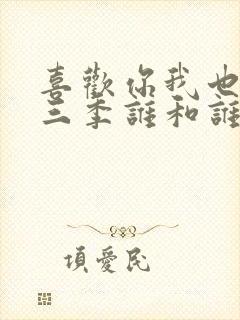 喜歡你我也
三季誰和誰
項愛民